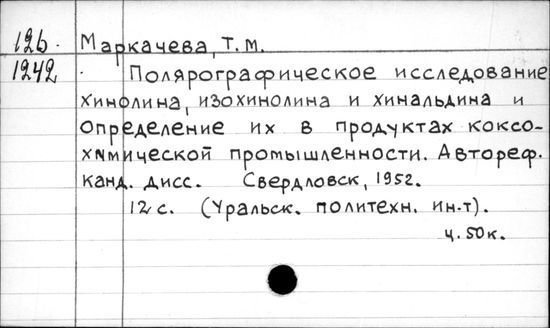 126.
Маркачева, Т.М.
1242
Полярографическое исследование
хинолина, изохинолина и хинальдина и
определение их в продуктах коксо-
химической промышленности. Автореф.
канд. дисс. Свердловск, 1952.
12 с. (Уральск. политехн. ин-т).
ц. 50к.